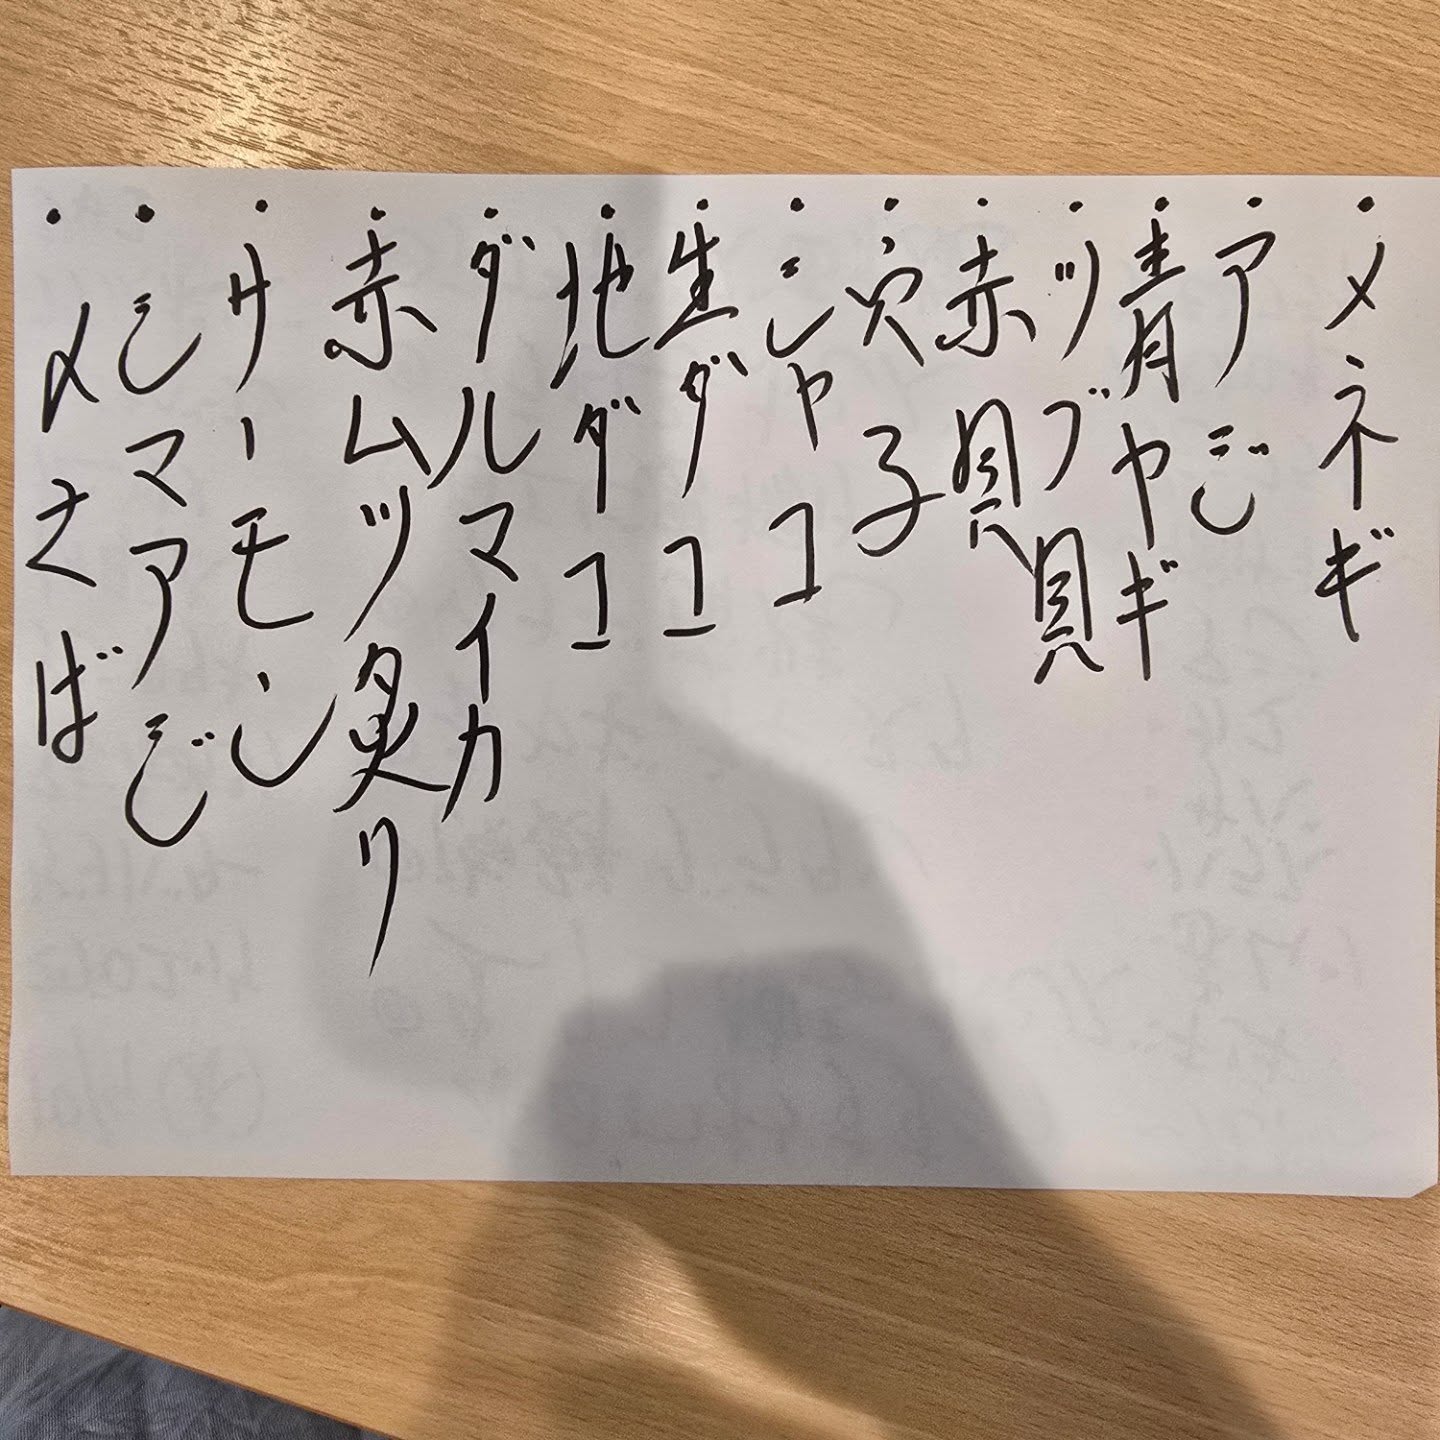 ・メネギ
・アジ
・青ヤギ
・ツブ貝
・赤貝
・穴子
・シャコ
・生ダコ
・地ダコ
・ダルマイカ
・赤ムツ炙り
・サーモン
・シマアジ
・〆さば